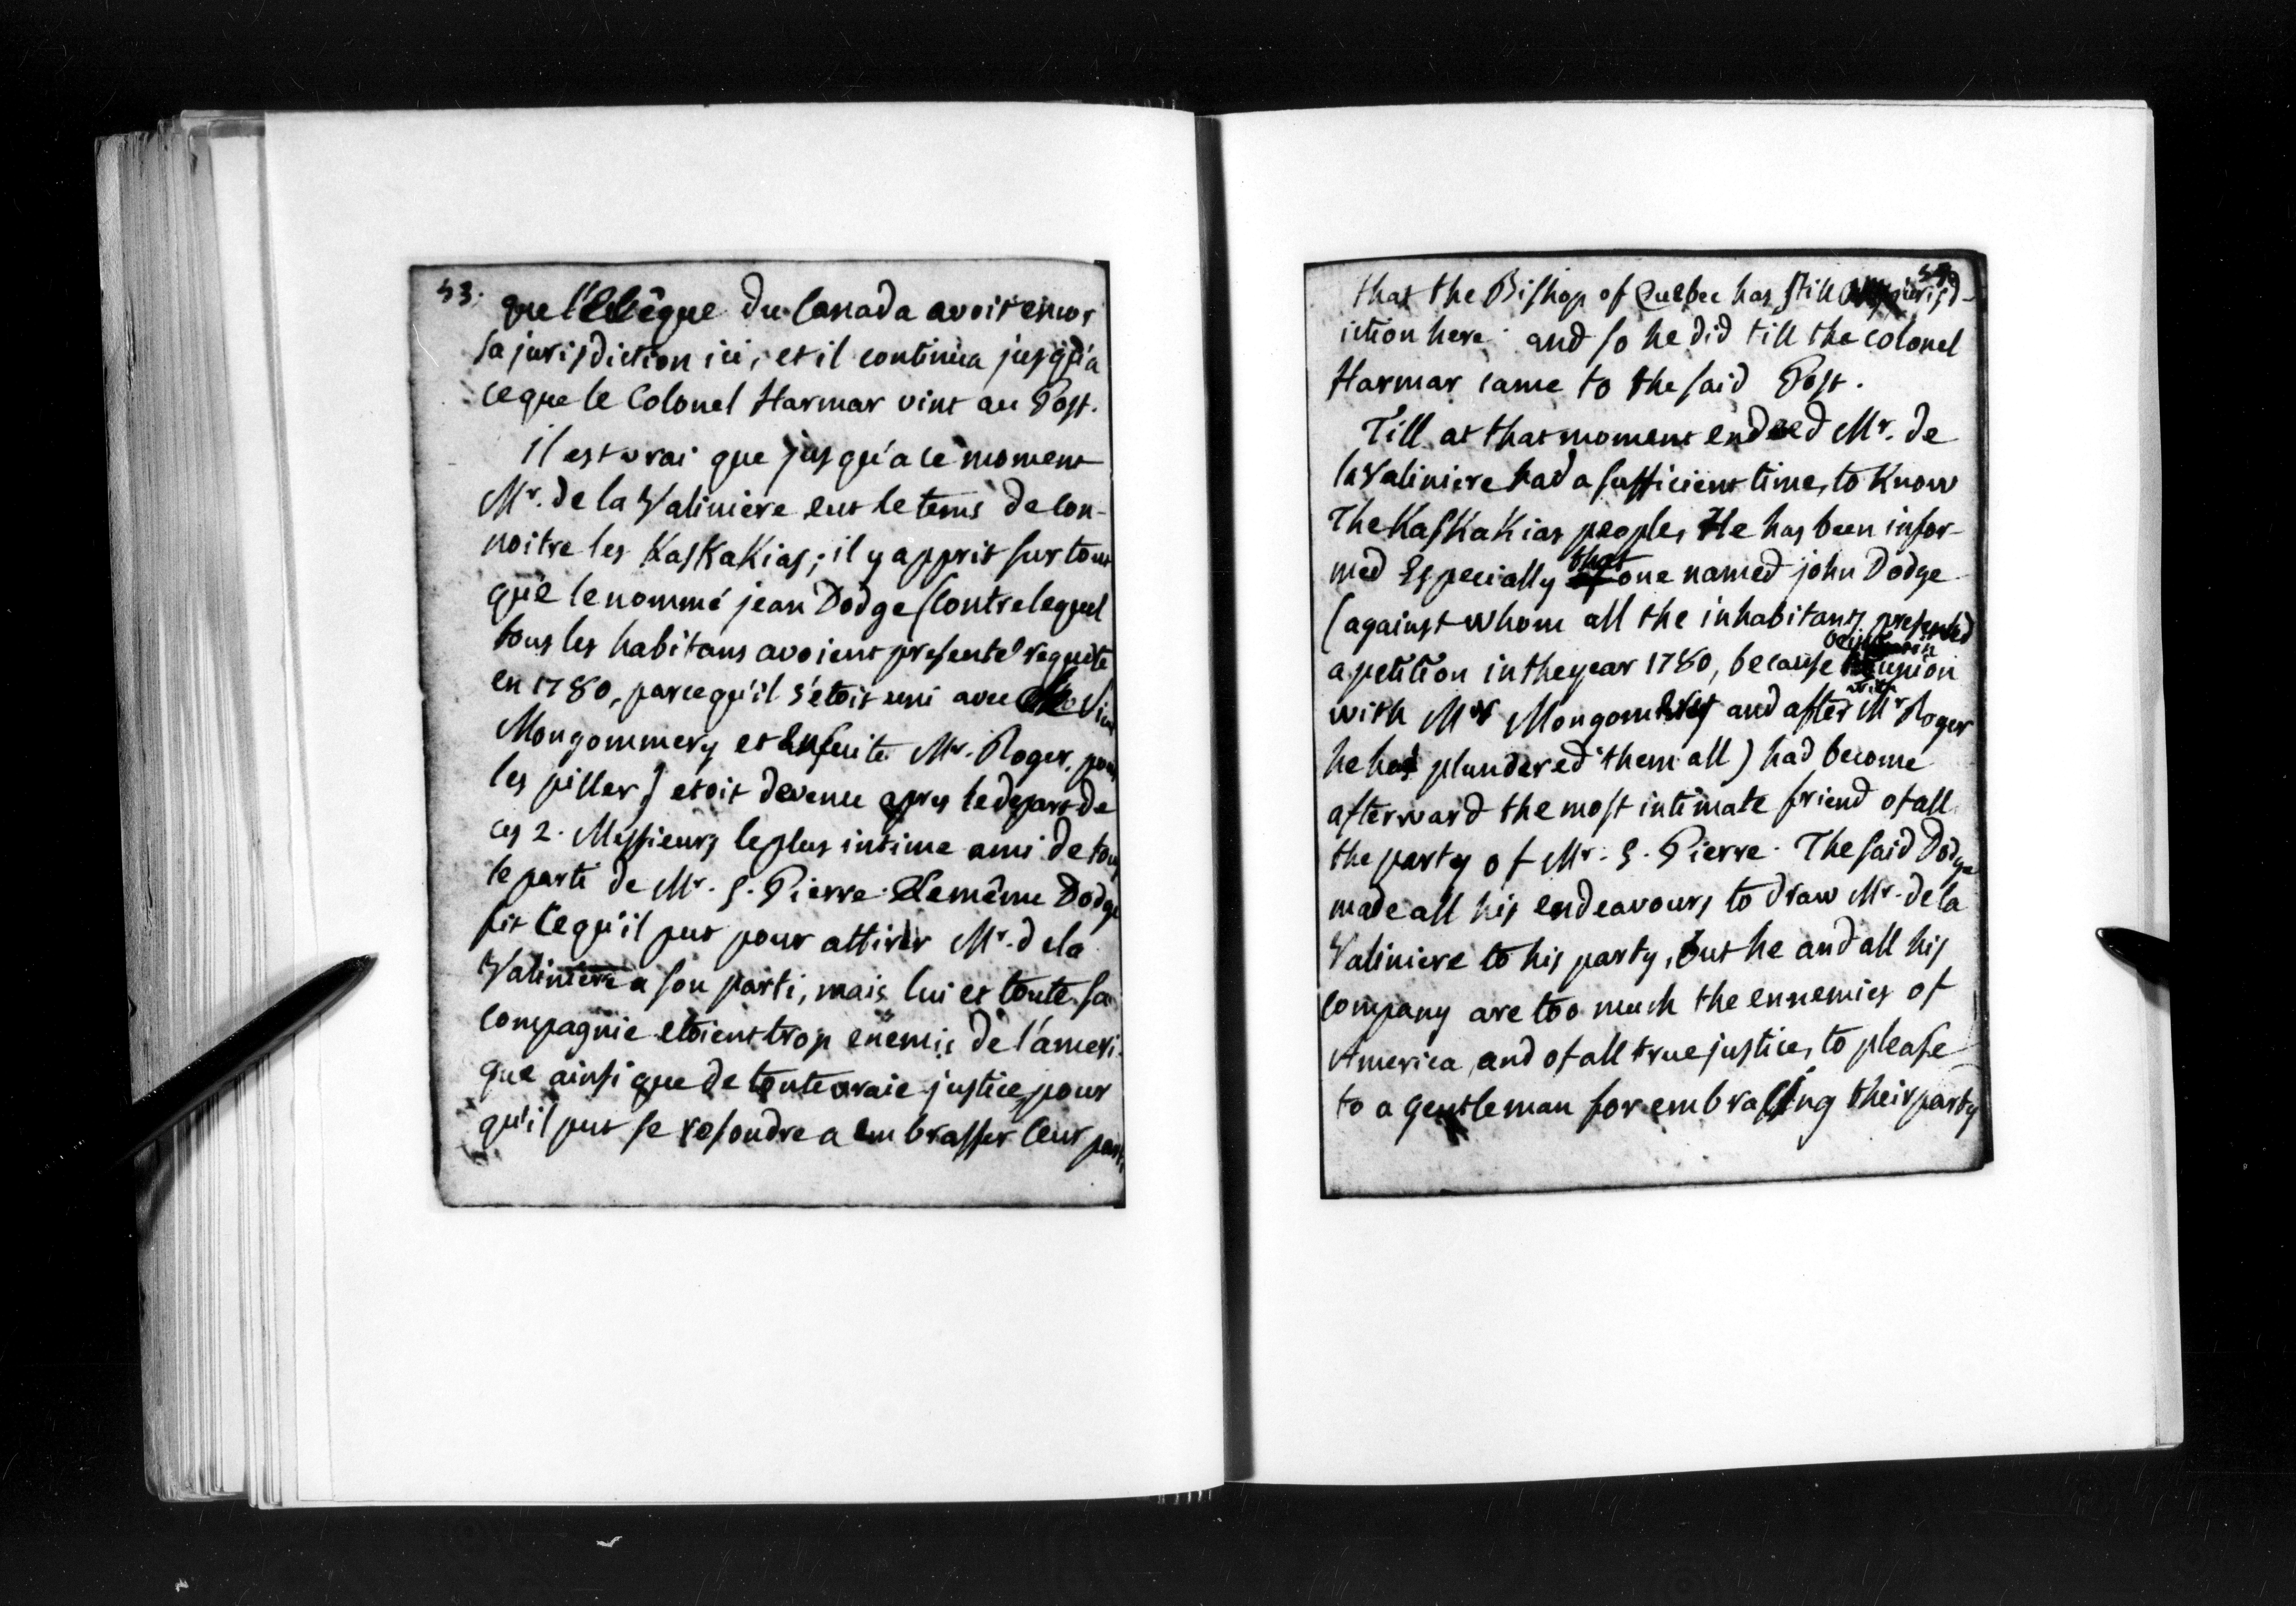 53.
que l'Evêque du Canada avoit encor
sa jurisdiction ici, et il continua jusqu'a
ce que le Colonel Harmar vint au Post.
il est vrai que jusqu'a ce moment
Mr. de la Valiniere eut le tems de con-
noitre les Kaskakias; il y apprit sur tout
que le nommé jean Dodge (contre lequel
tous les habitans avoient presenté requête
en 1780, parcequ'il s'étoit uni avec
Mongommery et ensuite Mr. Roger, pour
les piller) etoit devenu apres le depart de
ces 2. Messieurs le plus intime ami de tout
le parti de Mr. S. Pierre. Le même Dodge
fit ce qu'il put pour attirer Mr. de la
Valiniere a son parti, mais lui et toute sa
compagnie etoient trop enemis de l'ameri-
que ainsi que de toute vraie justice, pour
qu'il put se resoudre a embrasser leur parti
that the Bishop of Quebec has still jurisd-
iction here and so he did till the colonel
Harmar came to the said Post.
Till at that moment endeed Mr. de
la Valiniere had a sufficient time, to Know
The KasKaKias people, He has been infor-
med Especially that one named john Dodge
(against whom all the inhabitants presented
a petition in the year 1780, because union
with Mr Mongomery and after with Mr Roger
he had plundered them all) had become
afterward the most intimate friend of all
the party of Mr. S. Pierre. The said Dodge
made all his endeavours to draw Mr. de la
Valiniere to his party, but he and all his
company are too much the ennemies of
America, and of all true justice, to please
to a gentleman for embrasing their party